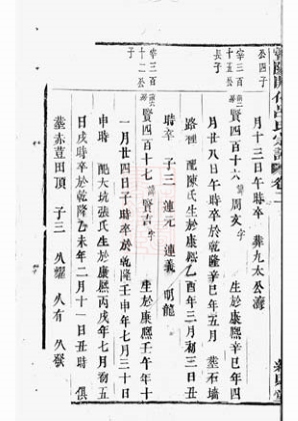 月十三日午時卒 葬九太公灣
公四子
宗三百
十五公
長子
賢四百十六 諱周亥 字
生於康熙辛巳年四
月廿八日午時卒於乾隆辛巳年五月 葬石墻
路裡 配陳氏生於康熙乙酉年三月初三日丑
時卒 子三 連元 連義 明龍
宗三百
十二公
子
賢四百十七 諱賢吉 字
生於康熙壬午年十
一月廿四日子時卒於乾隆壬申年七月三十日
申時 配大坑張氏生於康熙丙戌年七月初五
日戌時卒於乾隆乙未年二月十一日丑時 俱
葬赤荳田頂 子三 久耀 久有 久發